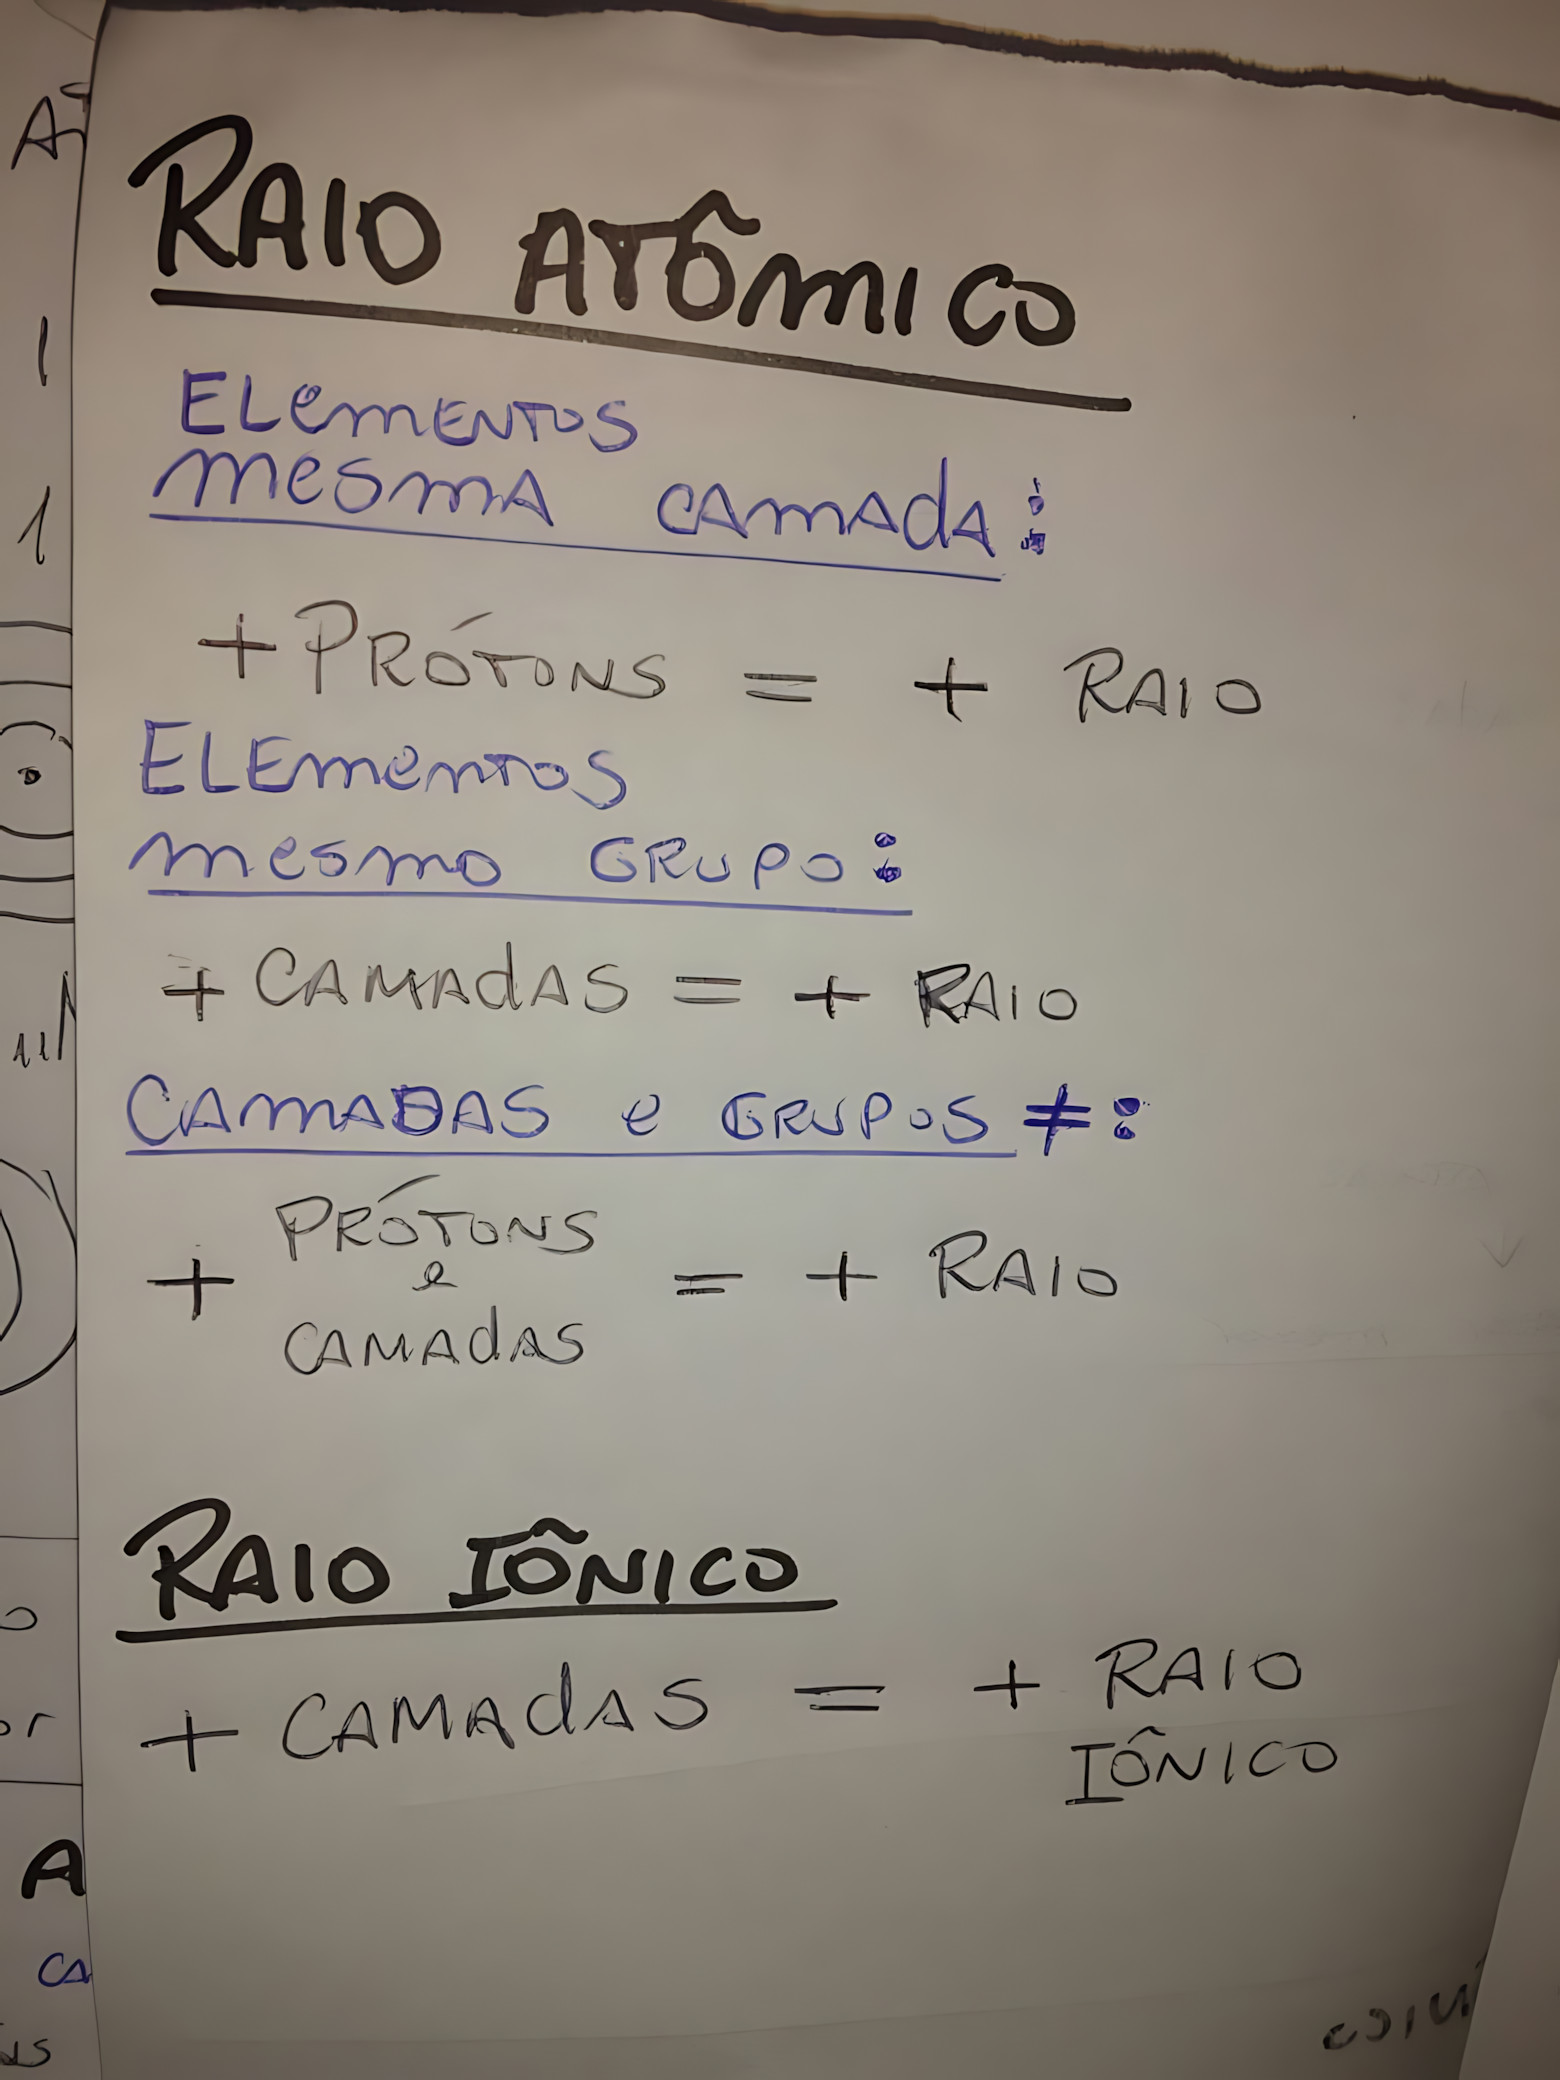 RAIO ATÔMICO
ELEMENTOS
MESMA CAMADA:
+ PRÓTONS = + RAIO
ELEMENTOS
MESMO GRUPO:
+ CAMADAS = + RAIO
CAMADAS e GRUPOS ≠:
+ PRÓTONS e CAMADAS = + RAIO
RAIO IÔNICO
+ CAMADAS = + RAIO
IÔNICO